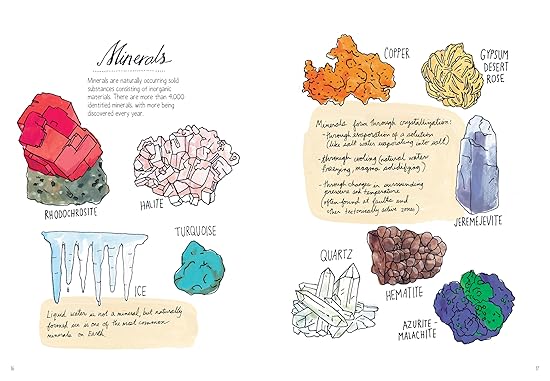 Minerals
Minerals are naturally occurring solid
substances consisting of inorganic
materials. There are more than 4,000
identified minerals, with more being
discovered every year.
RHODOCHROSITE
HALITE
TURQUOISE
ICE
Liquid water is not a mineral, but naturally
formed ice is one of the most common
minerals on Earth.
16
COPPER
GYPSUM
DESERT
ROSE
Minerals form through crystallization:
-through evaporation of a solution
(like salt water evaporating into salt)
-through cooling (natural water
freezing, magma solidifying)
-through changes in surrounding
pressure and temperature
(often found at faults and
other tectonically active zones)
JEREMEJEVITE
QUARTZ
HEMATITE
AZURITE-
MALACHITE
17